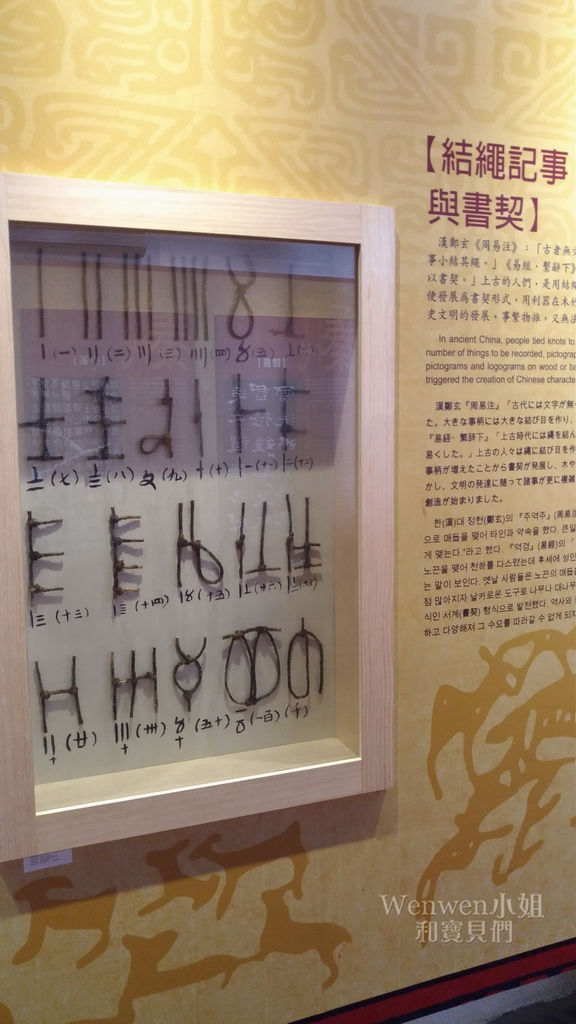 【結繩記事
與書契】
漢鄭玄《周易注》:「古者無
事小結其繩。」《易經·繫辭下》
以書契。」上古的人們,是用結
便發展為書契形式,用利器在木
史文明的發展,事繁物雜,又無法
In ancient China, people tied knots to
number of things to be recorded, pictogra
pictograms and logograms on wood or ba
triggered the creation of Chinese characte
漢鄭玄『周易注』「古代には文字が無
た。大きな事柄には大きな結び目を作り、
『易経·繫辞下』「上古時代には縄を結ん
易くした。」上古の人々は縄に結び目を作
事柄が増えたことから書契が発展し、木や
かし、文明の発達に随って諸事が更に複雑
創造が始まりました。
한(漢)대 정현(鄭玄)의 『주역주』(周易注
으로 매듭을 맺어 타인과 약속을 했다. 큰일
게 맺는다."라고 했다. 『역경』(易經)의 「
노끈을 맺어 천하를 다스렸는데 후세에 성인
는 말이 보인다. 옛날 사람들은 노끈의 매듭을
점 많아지자 날카로운 도구로 나무나 대나무
식인 서계(書契) 형식으로 발전했다. 역사와
하고 다양해져 그 수요를 따라갈 수 없게 되자
(一) (二) (三) (四) (五)
(七) (八) (九) (十) (十一) (十二)
(十三) (十四) (十五) (十六)
(廿) (卅) (五十) (一百) (千)
Wenwen小姐
和寶貝們